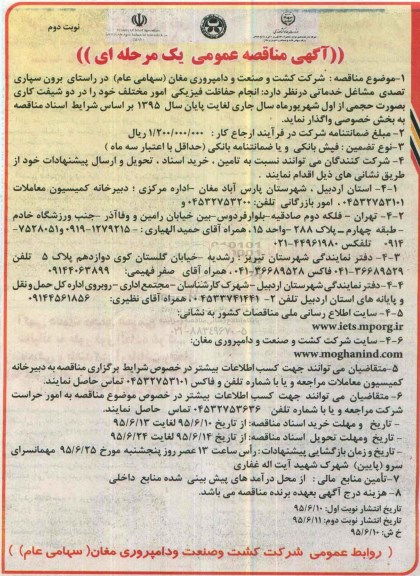 نوبت دوم
((آگهی مناقصه عمومی یک مرحله ای ))
۱-موضوع مناقصه : شرکت کشت و صنعت و دامپروری مغان (سهامی عام) در راستای برون سپاری
تصدی مشاغل خدماتی درنظر دارد: انجام حفاظت فیزیکی امور مختلف خود را در دو شیفت کاری
بصورت حجمی از اول شهریورماه سال جاری لغایت پایان سال ۱۳۹۵ بر اساس شرایط اسناد مناقصه
به بخش خصوصی واگذار نماید.
۲-مبلغ ضمانتنامه شرکت در فرآیند ارجاع کار : ۱/۲۰۰/۰۰۰/۰۰۰ ریال
۳-نوع تضمین : فیش بانکی و یا ضمانتنامه بانکی (حداقل با اعتبار سه ماه )
۴- شرکت کنندگان می توانند نسبت به تامین ، خرید اسناد ، تحویل و ارسال پیشنهادات خود از
طریق نشانی های ذیل اقدام نمایند .
۴-۱- استان اردبیل ، شهرستان پارس آباد مغان –اداره مرکزی ؛ دبیرخانه کمیسیون معاملات
۰۴۵۳۲۷۵۳۱۰۱ ، امور بازرگانی تلفن: ۰۴۵۳۲۷۵۳۲۰۰ و
۴-۲- تهران - فلکه دوم صادقیه-بلوارفردوس-بین خیابان رامین و وفاآذر -جنب ورزشگاه خادم
- طبقه چهارم – پلاک ۲۸۸ -واحد ۱۵، همراه آقای حمید الهیاری : ۱۲۷۹۲۱۵-۰۹۱۹ و ۷۵۲۸۰۵۱-
۰۹۱۴ تلفکس ۴۴۹۶۱۹۸۰-۰۲۱
۴-۳- دفتر نمایندگی شهرستان تبریز: رشدیه -خیابان گلستان کوی دوازدهم پلاک ۵ تلفن
۳۶۶۸۹۵۲۹-۰۴۱ فاکس ۳۶۶۸۹۵۲۸-۰۴۱، همراه آقای صفر فهیمی: ۰۹۱۴۴۰۶۳۸۹۹
۴-۴-دفتر نمایندگی شهرستان اردبیل –شهرک کارشناسان –مجتمع اداری –روبروی اداره کل حمل ونقل
و پایانه های استان اردبیل تلفن ۲- ۰۴۵۳۳۷۴۱۴۴۱ ، همراه آقای نظیری: ۰۹۱۴۴۵۶۱۸۵۶
۴-۵- سایت اطلاع رسانی ملی مناقصات کشور به نشانی:
www.iets.mporg.ir
۴-۶- سایت شرکت کشت و صنعت و دامپروری مغان:
www.moghanind.com
۵-متقاضیان می توانند جهت کسب اطلاعات بیشتر در خصوص شرایط برگزاری مناقصه به دبیرخانه
کمیسیون معاملات مراجعه و یا با شماره تلفن و فاکس ۰۴۵۳۲۷۵۳۱۰۱ تماس حاصل نمایند.
۶- متقاضیان می توانند جهت کسب اطلاعات بیشتر در خصوص موضوع مناقصه به امور حراست
شرکت مراجعه و یا با شماره تلفون ۰۴۵۳۲۷۵۳۶۳۶ تماس حاصل نمایند.
- تاریخ و مهلت خرید اسناد مناقصه: از تاریخ ۹۵/۶/۱۰ لغایت ۹۵/۶/۱۳
- تاریخ ومهلت تحویل اسناد مناقصه: از تاریخ ۹۵/۶/۱۴ لغایت ۹۵/۶/۲۴
-تاریخ و زمان بازگشایی پیشنهادات: رأس ساعت ۱۳ عصر روز پنجشنبه مورخ ۹۵/۶/۲۵ مهمانسرای
سرو (پایین) شهرک شهید آیت اله غفاری
۷-تأمین منابع مالی : از محل درآمد های پیش بینی شده منابع داخلی
۸- هزینه درج آگهی بعهده برنده مناقصه می باشد.
تاریخ انتشار نوبت اول: ۹۵/۶/۱۰
تاریخ انتشار نوبت دوم: ۹۵/۶/۱۱
خ ش: ۹۵/۶/۱۰
( روابط عمومی شرکت کشت وصنعت ودامپروری مغان( سهامی عام) )